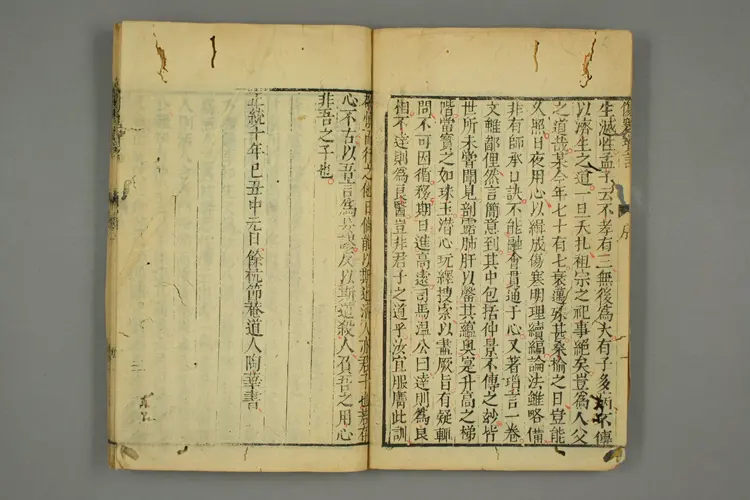 傷寒瑣言 序
生滅性孟子云不孝有三無後爲大有子多病不傳
以濟生之道一旦夭扎祖宗之祀事絕矣豈爲人父
之道哉某今年七十有七衰邁殊甚桑榆之日豈能
久照日夜用心以緝成傷寒明理續編論法雖略備
非有師承口訣不能融會貫通于心又著瑣言一卷
文雖鄙俚然言簡意到其中包括仲景不傳之妙皆
世所未嘗聞見剖露肺肝以罄其蘊奧寔升高之梯
階當寳之如珠玉潛心玩繹搜索以盡厥旨有疑輒
問不可因循移期日進高遠司馬溫公曰達則爲良
相不達則爲良醫豈非君子之道乎汝宜服膺此訓
而行之他日儻能以斯道濟人亦君子也若存
心不古以吾言爲具反以斯道殺人負吾之用心
非吾之子也
正統十年巳丑中元日餘杭節菴道人陶華書